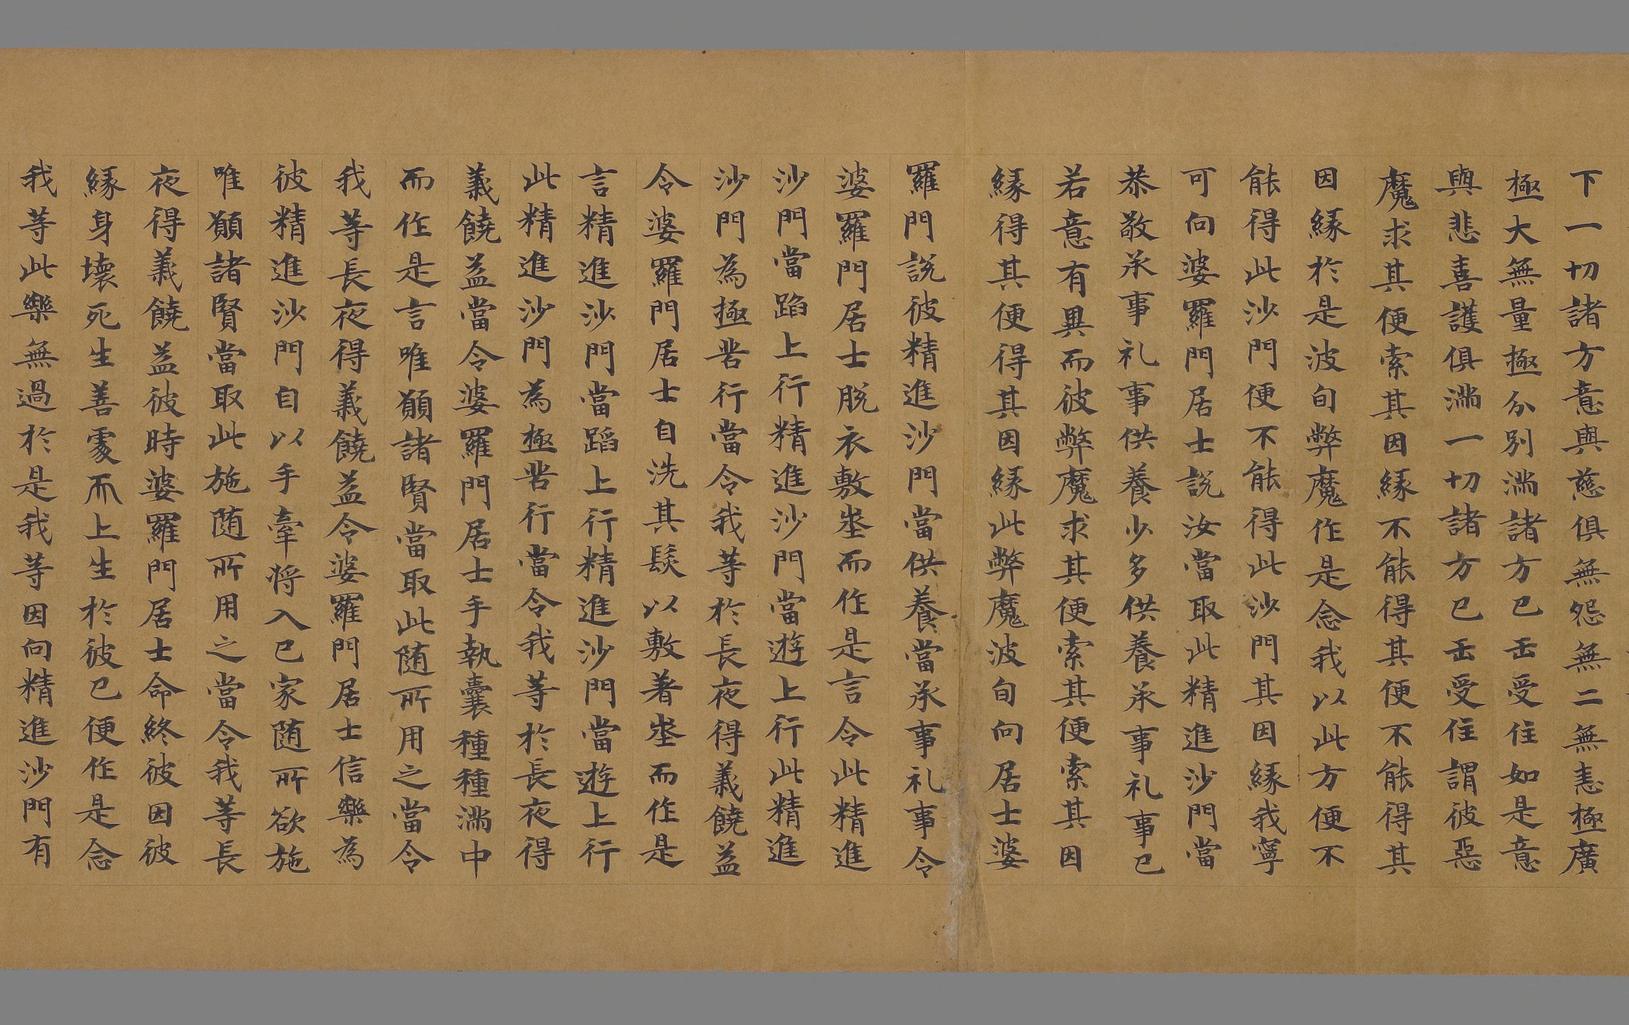 下一切諸方意與慈俱無怨無二無恚極廣
極大無量極分別滿諸方已缶受住如是意
與悲喜護俱滿一切諸方已缶受住謂彼惡
魔求其便索其因緣不能得其便不能得其
因緣於是波旬弊魔作是念我以此方便不
能得此沙門便不能得此沙門其因緣我寧
可向婆羅門居士說汝當取此精進沙門當
恭敬承事礼事供養少多供養承事礼事已
若意有異而彼弊魔求其便索其便索其因
緣得其便得其因緣此弊魔波旬向居士婆
羅門說彼精進沙門當供養當承事礼事令
婆羅門居士脫衣敷㘴而作是言令此精進
沙門當蹈上行精進沙門當遊上行此精進
沙門為極苦行當令我等於長夜得義饒益
令婆羅門居士自洗其髮以敷著㘴而作是
言精進沙門當蹈上行精進沙門當遊上行
此精進沙門為極苦行當令我等於長夜得
義饒益當令婆羅門居士手執囊種種滿中
而作是言唯願諸賢當取此随所用之當令
我等長夜得義饒益令婆羅門居士信樂為
彼精進沙門自以手牽將入已家随所欲施
唯願諸賢當取此施随所用之當令我等長
夜得義饒益彼時婆羅門居士命終彼因彼
緣身壞死生善處而上生於彼已便作是念
我等此樂無過於是我等因向精進沙門有